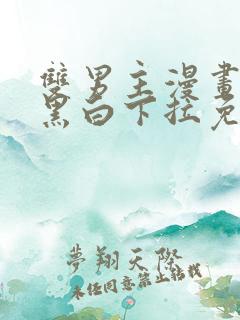 雙男主漫畫
黑白下拉免
夢翔天際
未经同意禁止转载